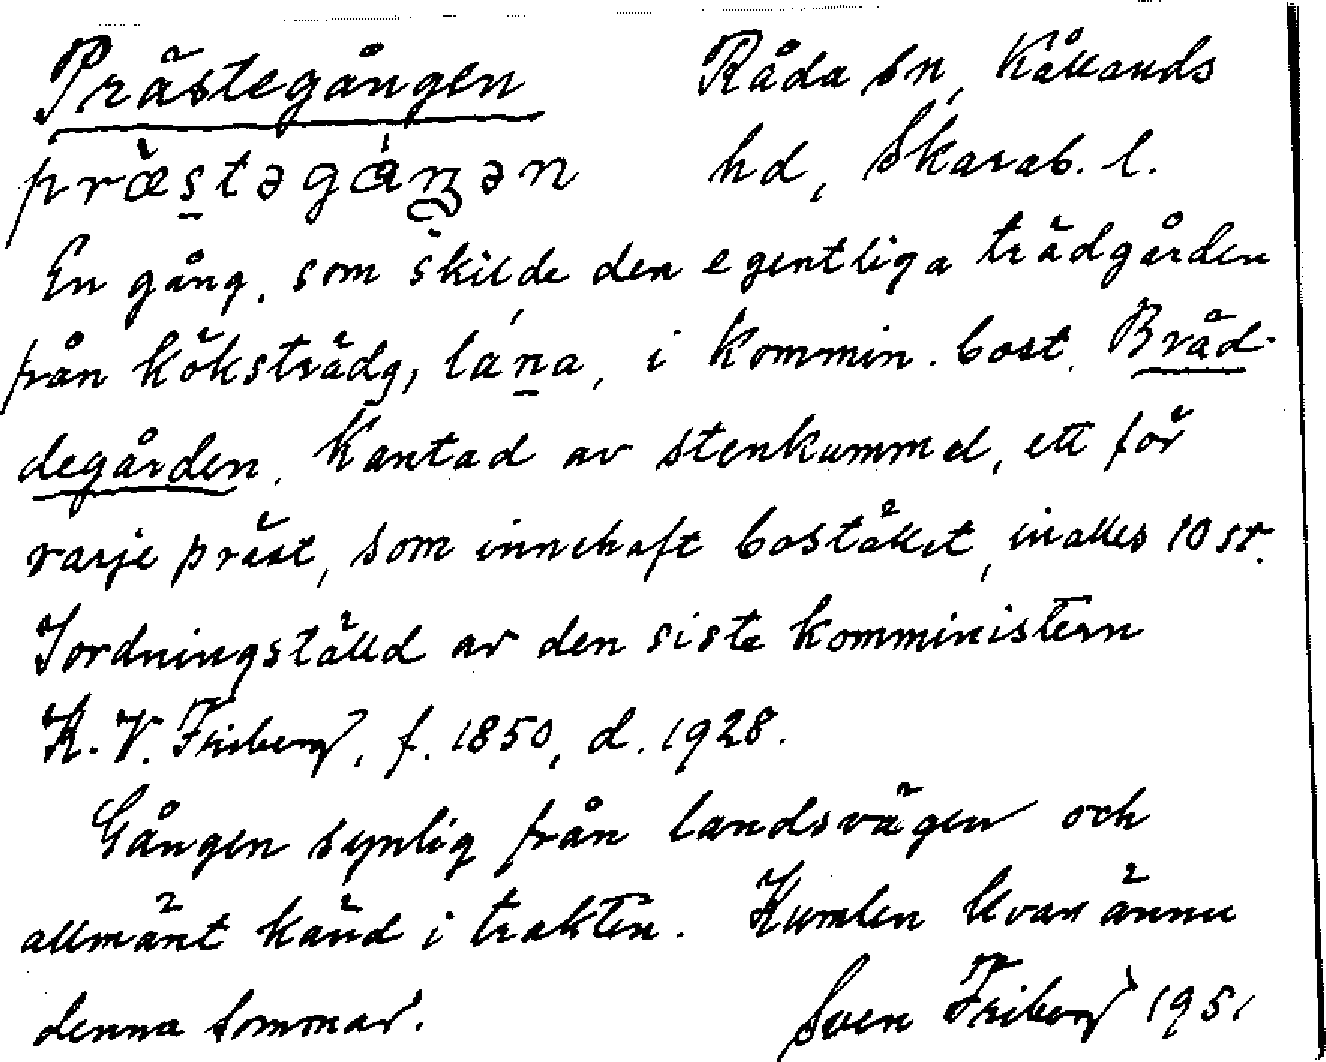 Prästegången
Råda sn, Kållands
hd, Skarab. l.
En gång, som skilde den egentliga trädgården
från köksträdg, i kommin. bost. Bräd-
degården. Kantad av stenkummel, ett för
varje präst, som innehaft bostället, inalles 10 st.
Iordningställd av den siste komministern
K. V. Friberg, f. 1850, d. 1928.
Gången synlig från landsvägen och
allmänt känd i trakten. Kumlen kvar ännu
denna sommar.
Sven Friberg 1951